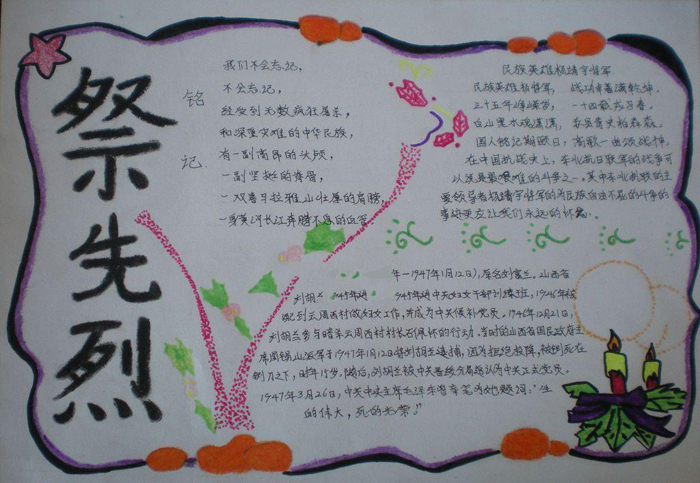 祭先烈
铭记
我们不会忘记，
不会忘记，
经受到无数疯狂屠杀，
和深重灾难的中华民族，
有一副高昂的头颅
一副坚挺的脊骨，
一双喜马拉雅山壮厚的肩膀
一身黄河长江奔腾不息的血
民族英雄杨靖宇将军
民族英雄杨将军， 战功卓著满乾坤。
三十五年峥嵘岁， 一十四载
白山黑水 森森
国人铭记 日，高歌一曲颂战神。
在中国抗战史上，东北抗日联军的战事可
以说是最艰难的斗争之一。其中东北抗联的主
要领导者杨靖宇将军的为民族自由不屈的斗争的
事迹更应让我们永远的怀念。
年－1947年1月12日），原名刘富兰。山西省
刘胡兰 1945年 1945年 中共妇女干部训练班，1946年被
到云周西村做妇女工作，并成为中共候补党员。1946年12月21日，
刘胡兰参与暗杀云周西村村长石佩怀的行动。当时的山西省国民政府主
席阎锡山派军于1947年1月12日将刘胡兰逮捕，因为拒绝投降，被铡死在
铡刀之下，时年15岁。随后，刘胡兰被中共晋绥分局追认为中共正式党员。
1947年3月26日，中共中央主席毛泽东 笔为她题词：“生
的伟大，死的光荣。”